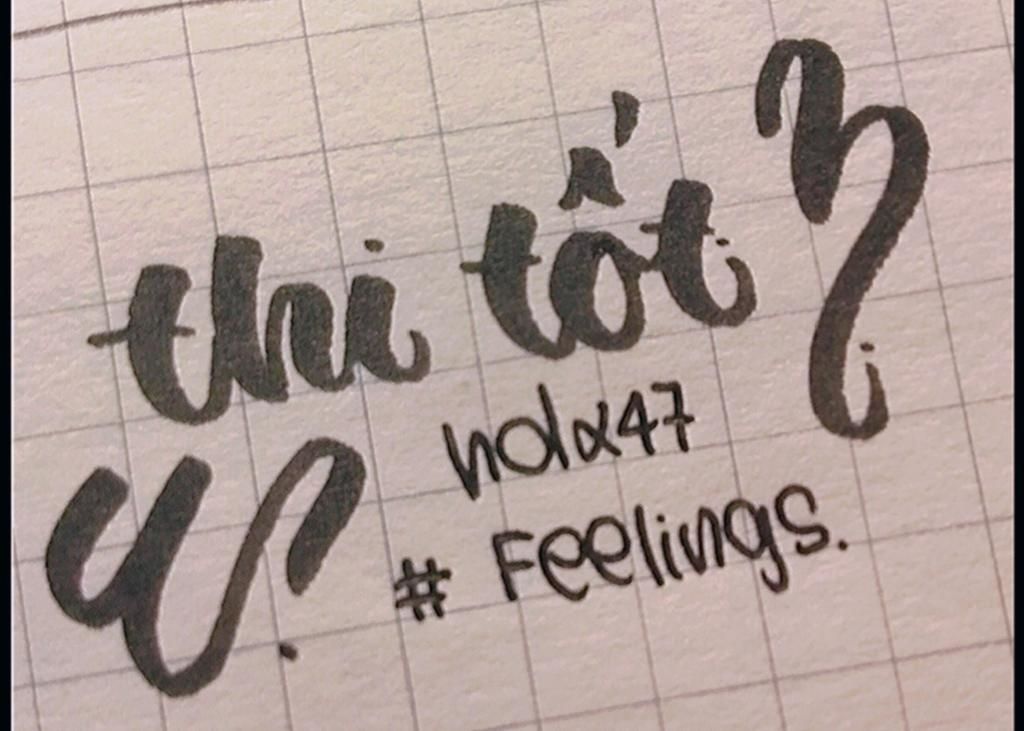 thi tốt
hola47
# Feelings.